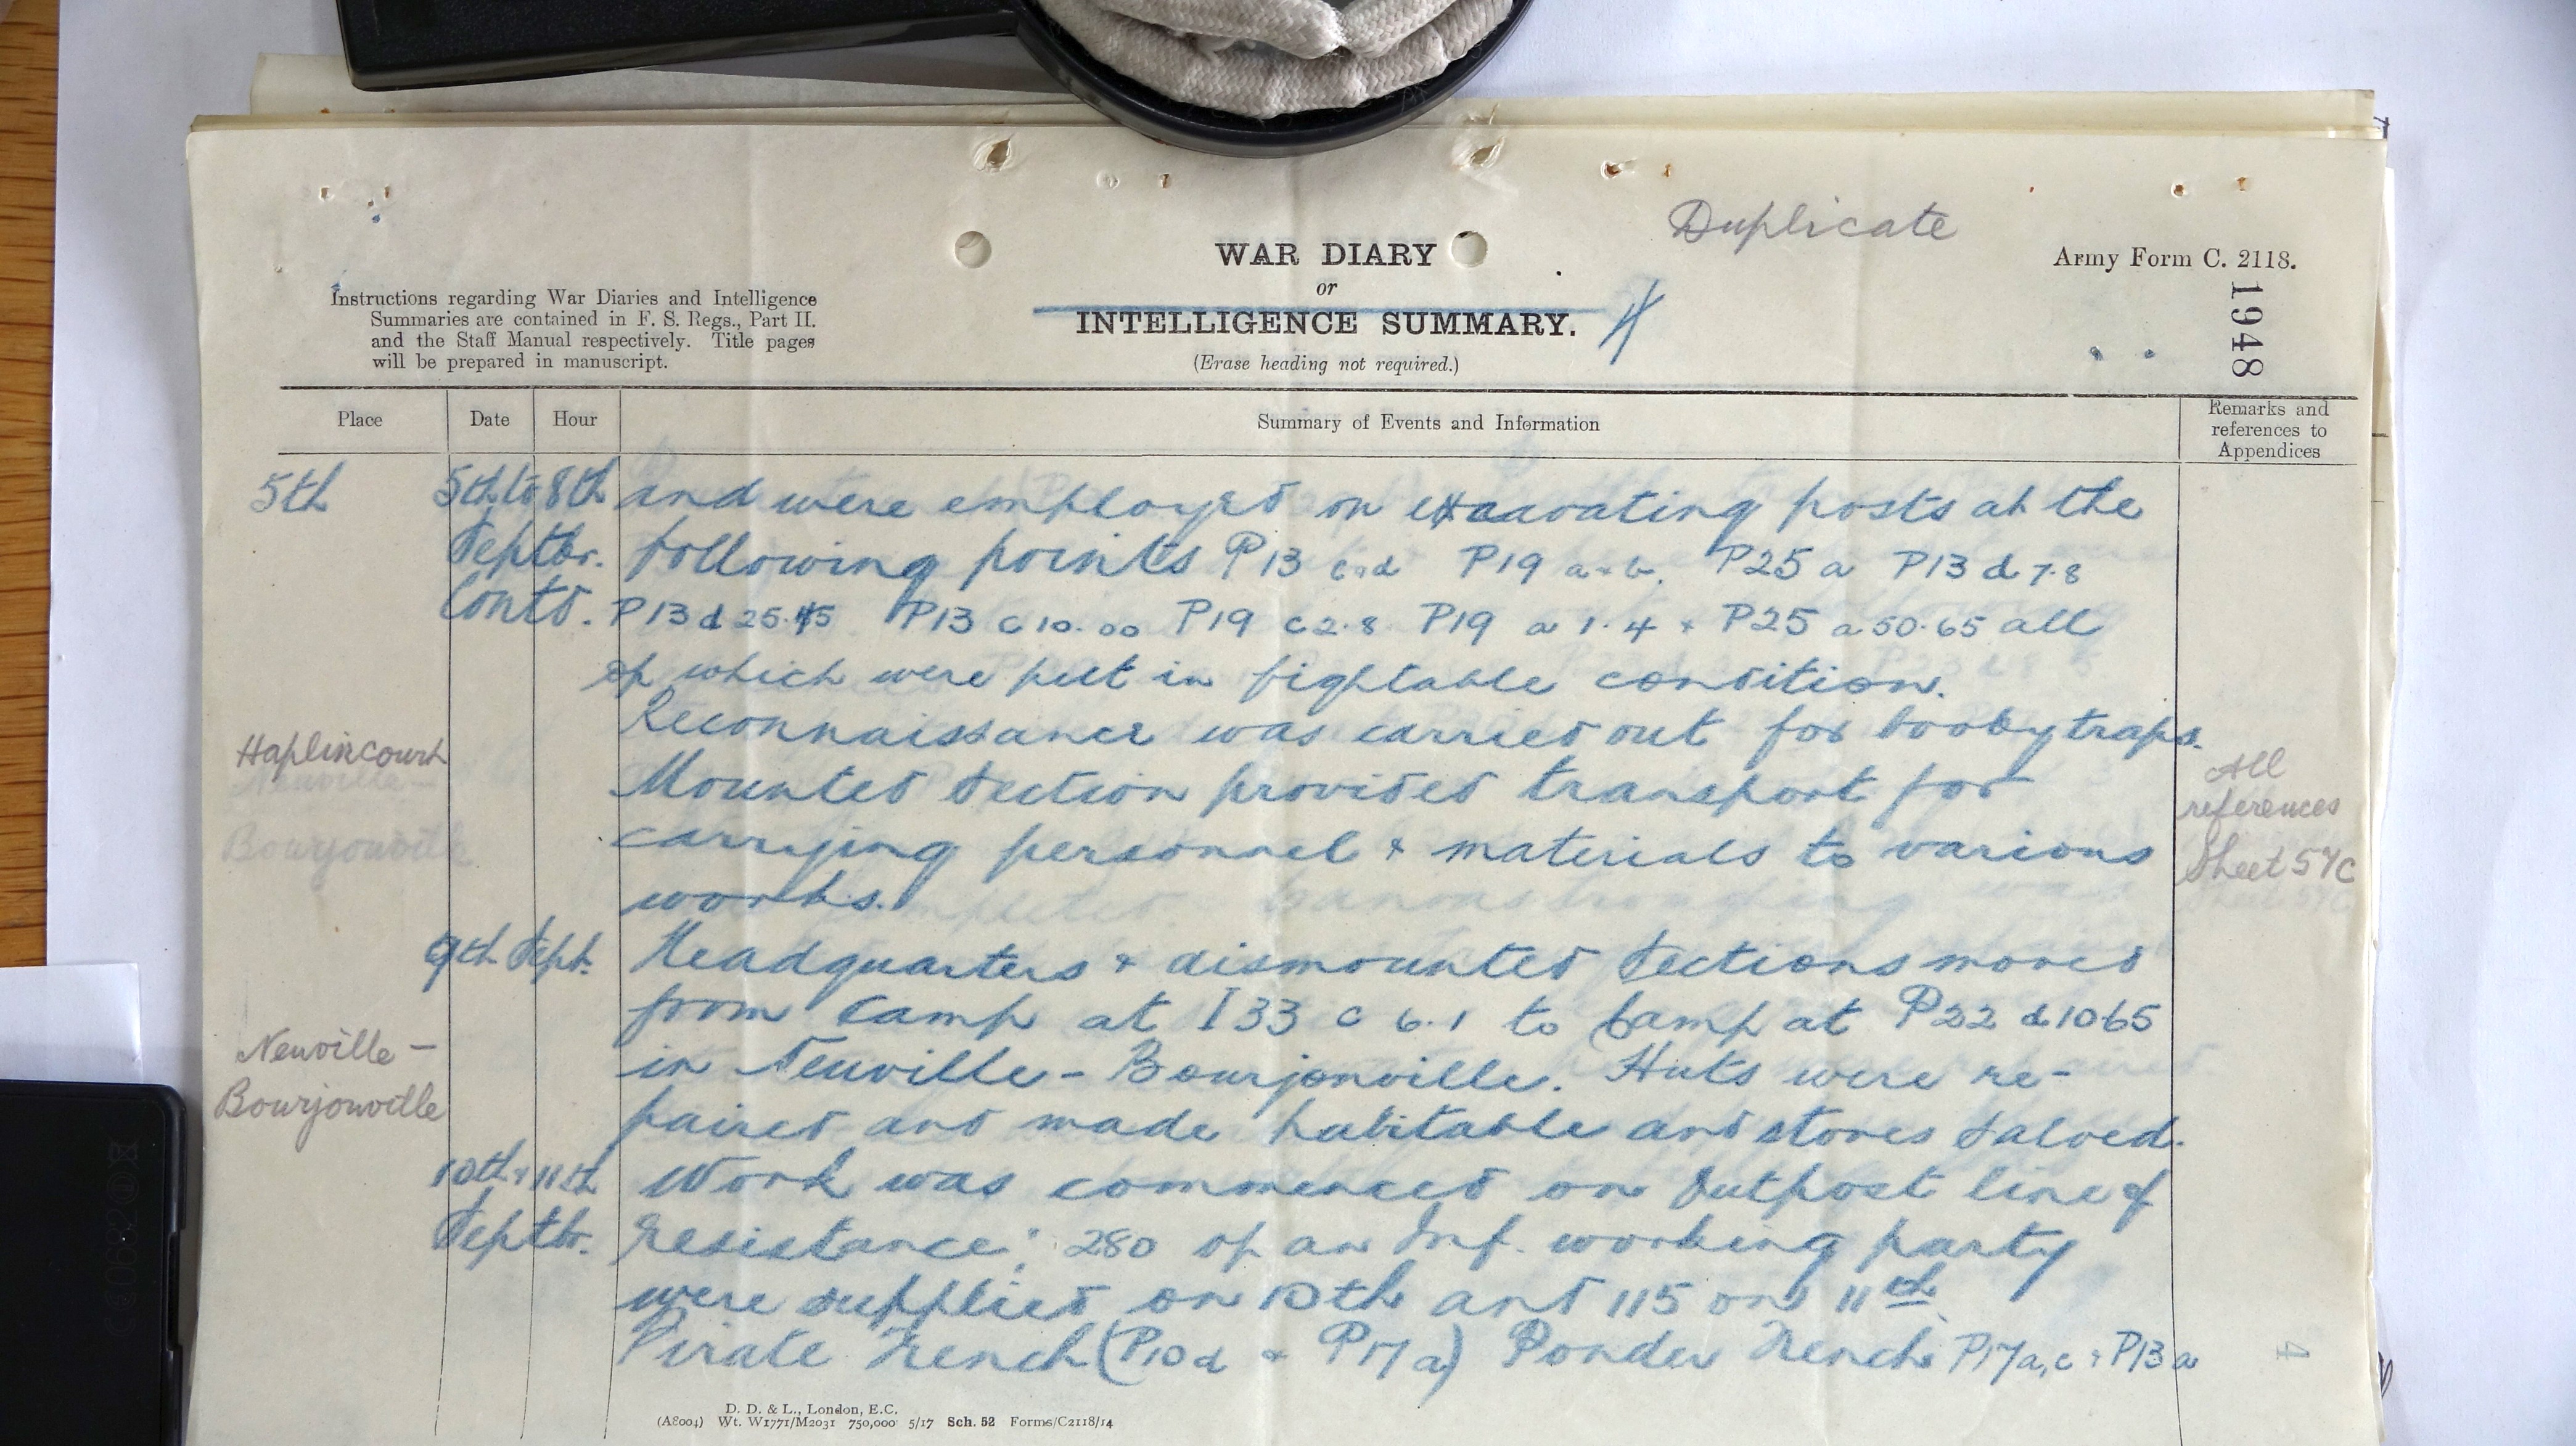 Duplicate
WAR DIARY
or
INTELLIGENCE SUMMARY.
(Erase heading not required.)
Army Form C. 2118.
1948
Instructions regarding War Diaries and Intelligence
Summaries are contained in F. S. Regs., Part II.
and the Staff Manual respectively. Title pages
will be prepared in manuscript.
Place Date Hour Summary of Events and Information Remarks and
references to
Appendices
5th 5th to 8th and were employed on excavating posts at the
Septbr. following points P13 c & d P19 a & b. P25 a P13 d 7.8
Contd. P13 d 25.45 P13 c 10.00 P19 c 2.8 P19 a 1.4 & P25 a 50.65 all
of which were put in fightable condition.
Reconnaissance was carried out for booby traps.
Haplincourt
Neuville-
Bourjonville
Mounted Section provided transport for
carrying personnel & materials to various
works.
All
references
Sheet 57C
9th Sept. Headquarters & dismounted Sections moved
from Camp at I33 c 6.1 to Camp at P22 d 10.65
Neuville -
Bourjonville
in Neuville - Bourjonville. Huts were re-
paired and made habitable and stores salved.
10th & 11th Work was commenced on Outpost line of
Septbr. resistance; 280 of an Inf. working party
were supplied on 10th and 115 on 11th
Pirate Trench (P10d & P17a) Ponder Trench P17a,c & P13a
4
D. D. & L., London, E.C.
(A8004) Wt. W1771/M2031 750,000 5/17 Sch. 52 Forms/C2118/14